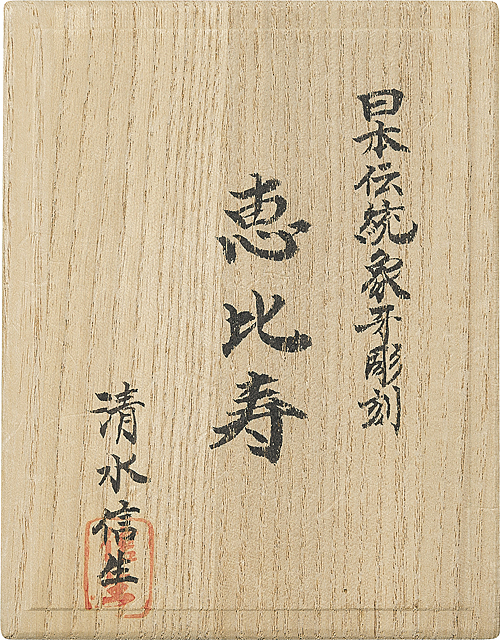 日本伝統象牙彫刻
恵比寿
清水信生